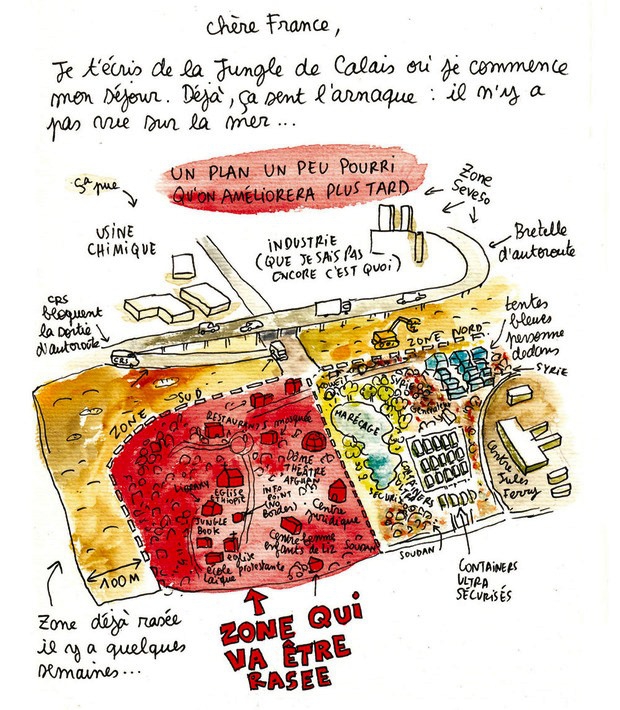 chère France,
Je t'écris de la Jungle de Calais où je commence
mon séjour. Déjà, ça sent l'arnaque : il n'y a
pas vue sur la mer...
UN PLAN UN PEU POURRI
QU'ON AMÉLIORERA PLUS TARD
ça pue
Zone
Seveso
USINE
CHIMIQUE
INDUSTRIE
(QUE JE SAIS PAS
ENCORE C'EST QUOI)
Bretelle
d'autoroute
CRS
bloquent
la sortie
d'autoroute
CRS
tentes
bleues
personne
dedans
ZONE NORD
SYRIE
SYRIE
ZONE SUD
RESTAURANTS
mosquée
MARÉCAGE
DÔME
THÉÂTRE
AFGHAN
LIBRARY
EGLISE
ETHIOPIE
INFO
POINT
(NO
Border)
Centre
juridique
JUNGLE
BOOK
Centre femme
enfants de Liz
eglise
protestante
école
laïque
Soudan
CONTAINERS
SÉCURISÉ
Centre
Jules
Ferry
SOUDAN
CONTAINERS
ULTRA
SÉCURISÉS
100M
Zone déjà rasée
il y a quelques
semaines...
ZONE QUI
VA ÊTRE
RASEE